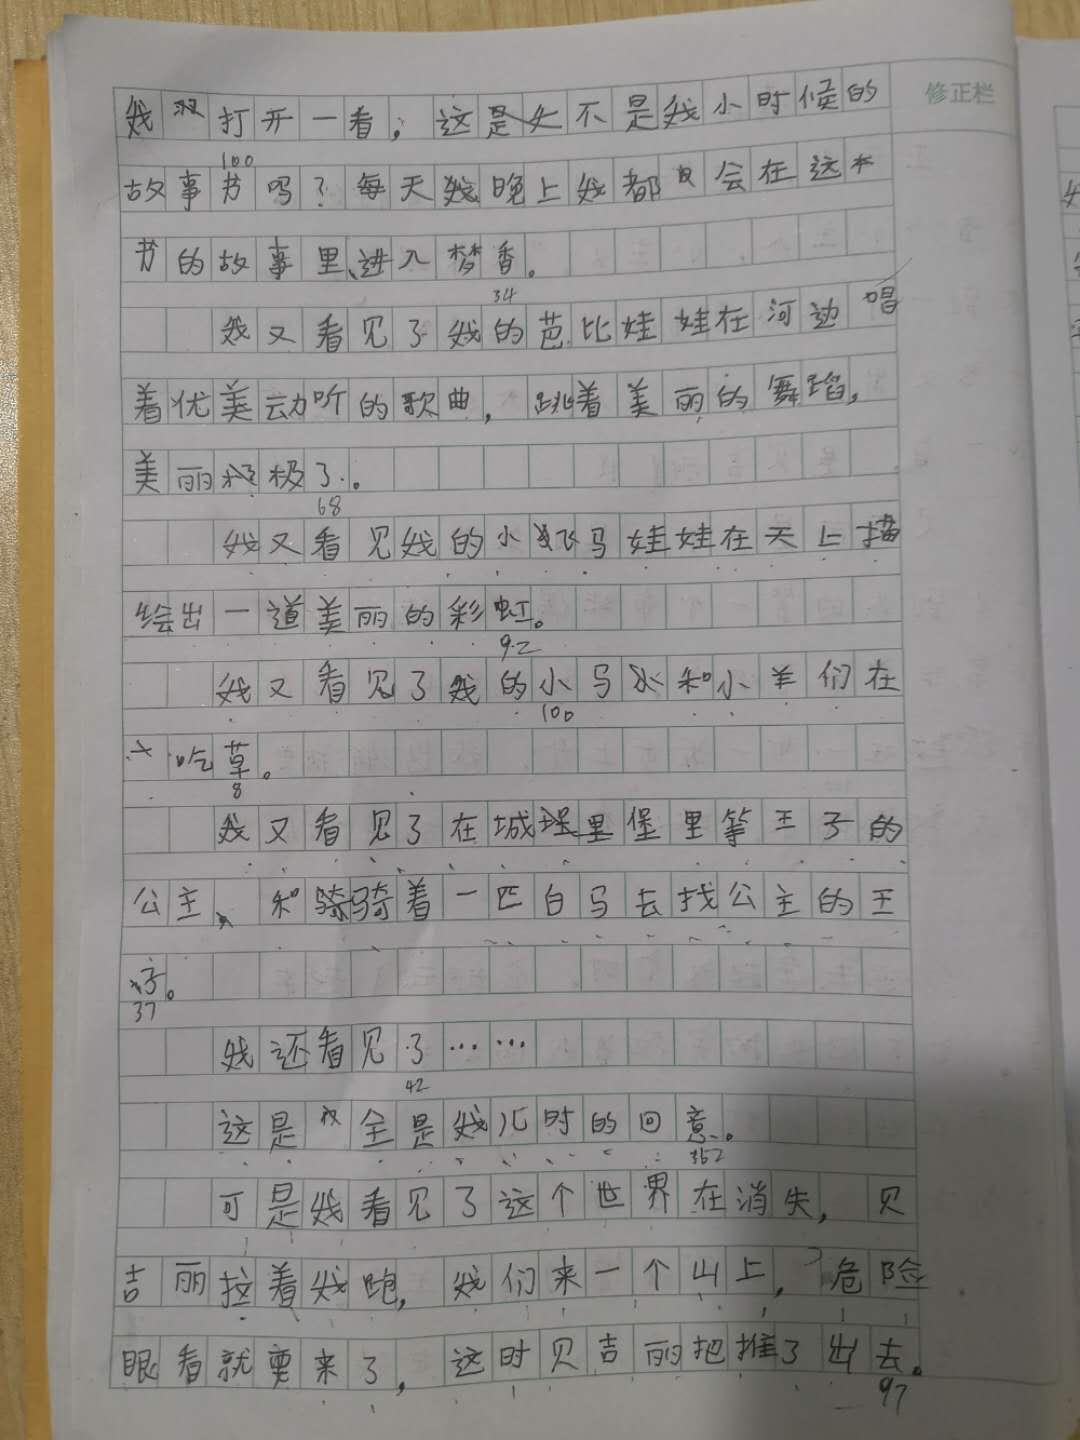 我打开一看，这是不是我小时候的 修正栏
100
故事书吗？每天晚上我都会在这本
书的故事里进入梦香。
34
我又看见了我的芭比娃娃在河边唱
着优美动听的歌曲，跳着美丽的舞蹈，
美丽极了。
68
我又看见我的小飞马娃娃在天上描
绘出一道美丽的彩虹。
92
我又看见了我的小马和小羊们在
100
吃草。
8
我又看见了在城堡里等王子的
公主、和骑着一匹白马去找公主的王
子。
37
我还看见了……
42
这是全是我儿时的回意。
352
可是我看见了这个世界在消失，贝
吉丽拉着我跑，我们来一个山上，危险
眼看就要来了，这时贝吉丽把推了出去。
97